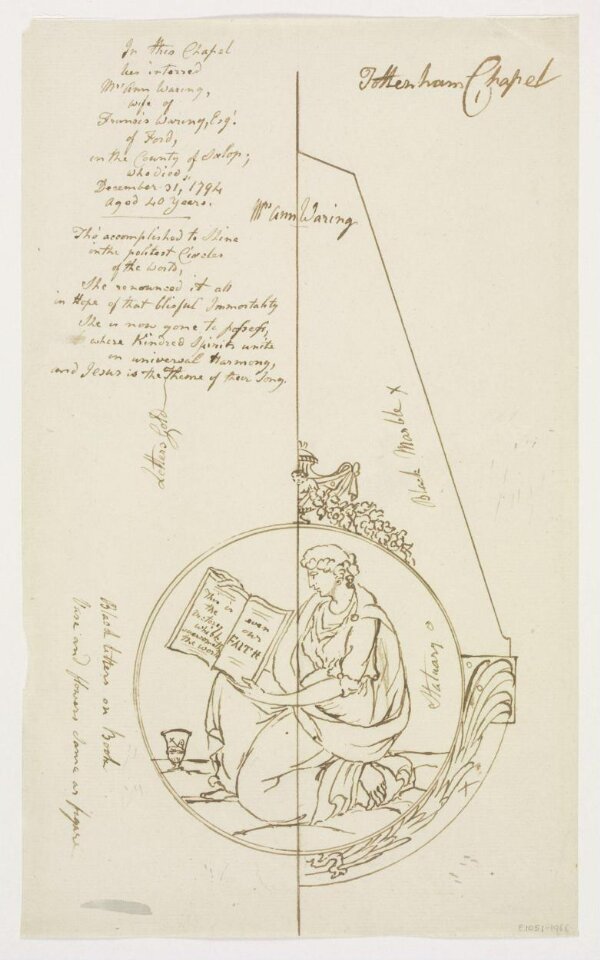 In this Chapel
lies interred
Mrs. Ann Waring,
wife of
Francis Waring, Esqr.
of Ford,
in the County of Salop;
who died,
December 31, 1794
aged 40 Years.
Tho' accomplished to Shine
in the politest Circles
of the World,
She renounced it all
in Hope of that blissful Immortality
She is now gone to possess,
where Kindred Spirits unite
in universal Harmony,
and Jesus is the Theme of their Song.
Letters Gold
Tottenham Chapel
Mrs Ann Waring
Black Marble x
This is
the
Victory
which
overcometh
the World
even
our
FAITH
Statuary o
x
Black letters on Book
Vase and flowers same as figure
E.1051-1966